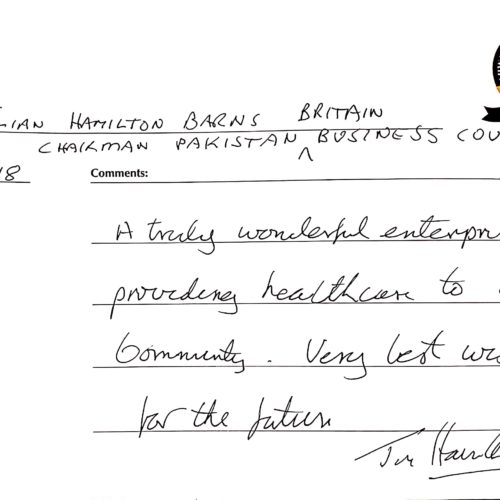 LIAN HAMILTON BARNS BRITAIN
CHAIRMAN PAKISTAN ^ BUSINESS COU
18
Comments:
A truly wonderful enterpri
providing healthcare to
Community. Very best wi
for the future